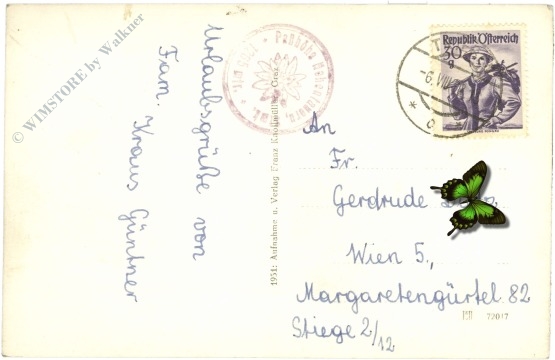 © WIMSTORE by Walkner
Urlaubsgrüße von
Fam. Kraus Güntner
1951: Aufnahme u. Verlag Franz Knollmüller, Graz
Republik Österreich
30
g
An
Fr.
Gerdrude
Wien 5.,
Margaretengürtel 82
Stiege 2/12
72017